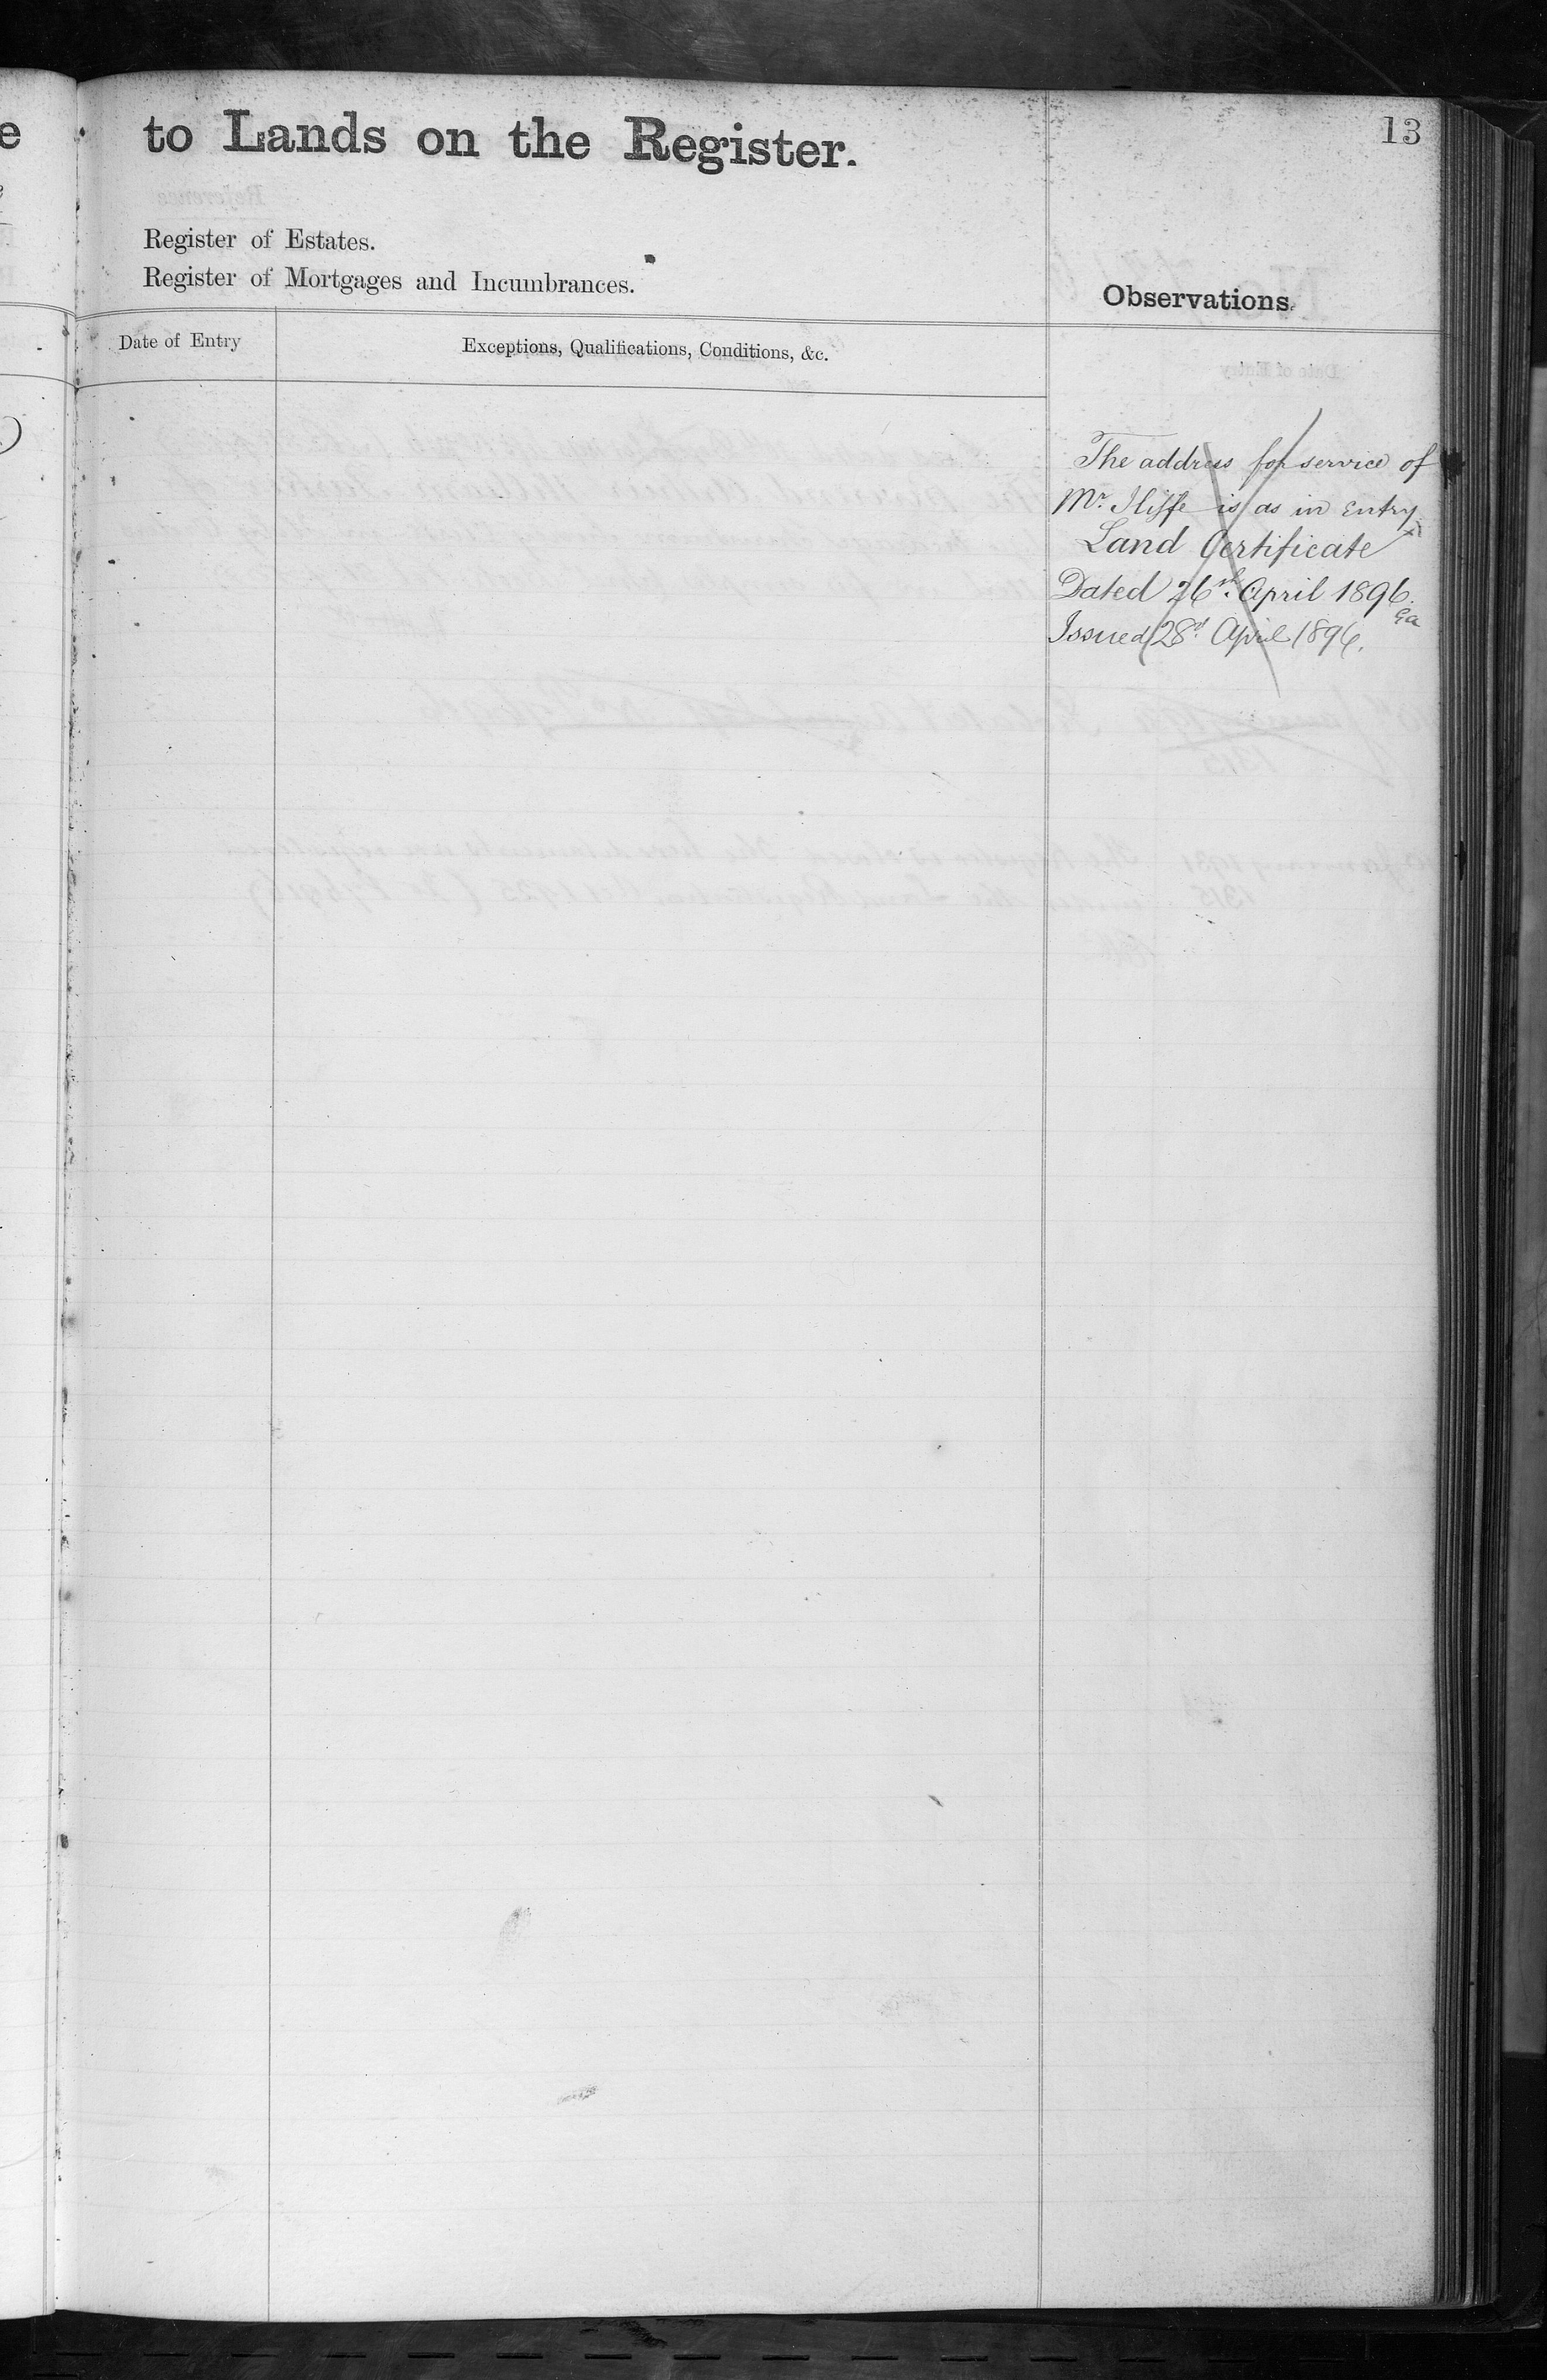 to Lands on the Register.
13
Register of Estates.
Register of Mortgages and Incumbrances.
Observations.
Date of Entry
Exceptions, Qualifications, Conditions, &c.
The address for service of
Mr. Iliffe is as in Entry
Land Certificate
Dated 26th April 1896.
Issued 28th April 1896.